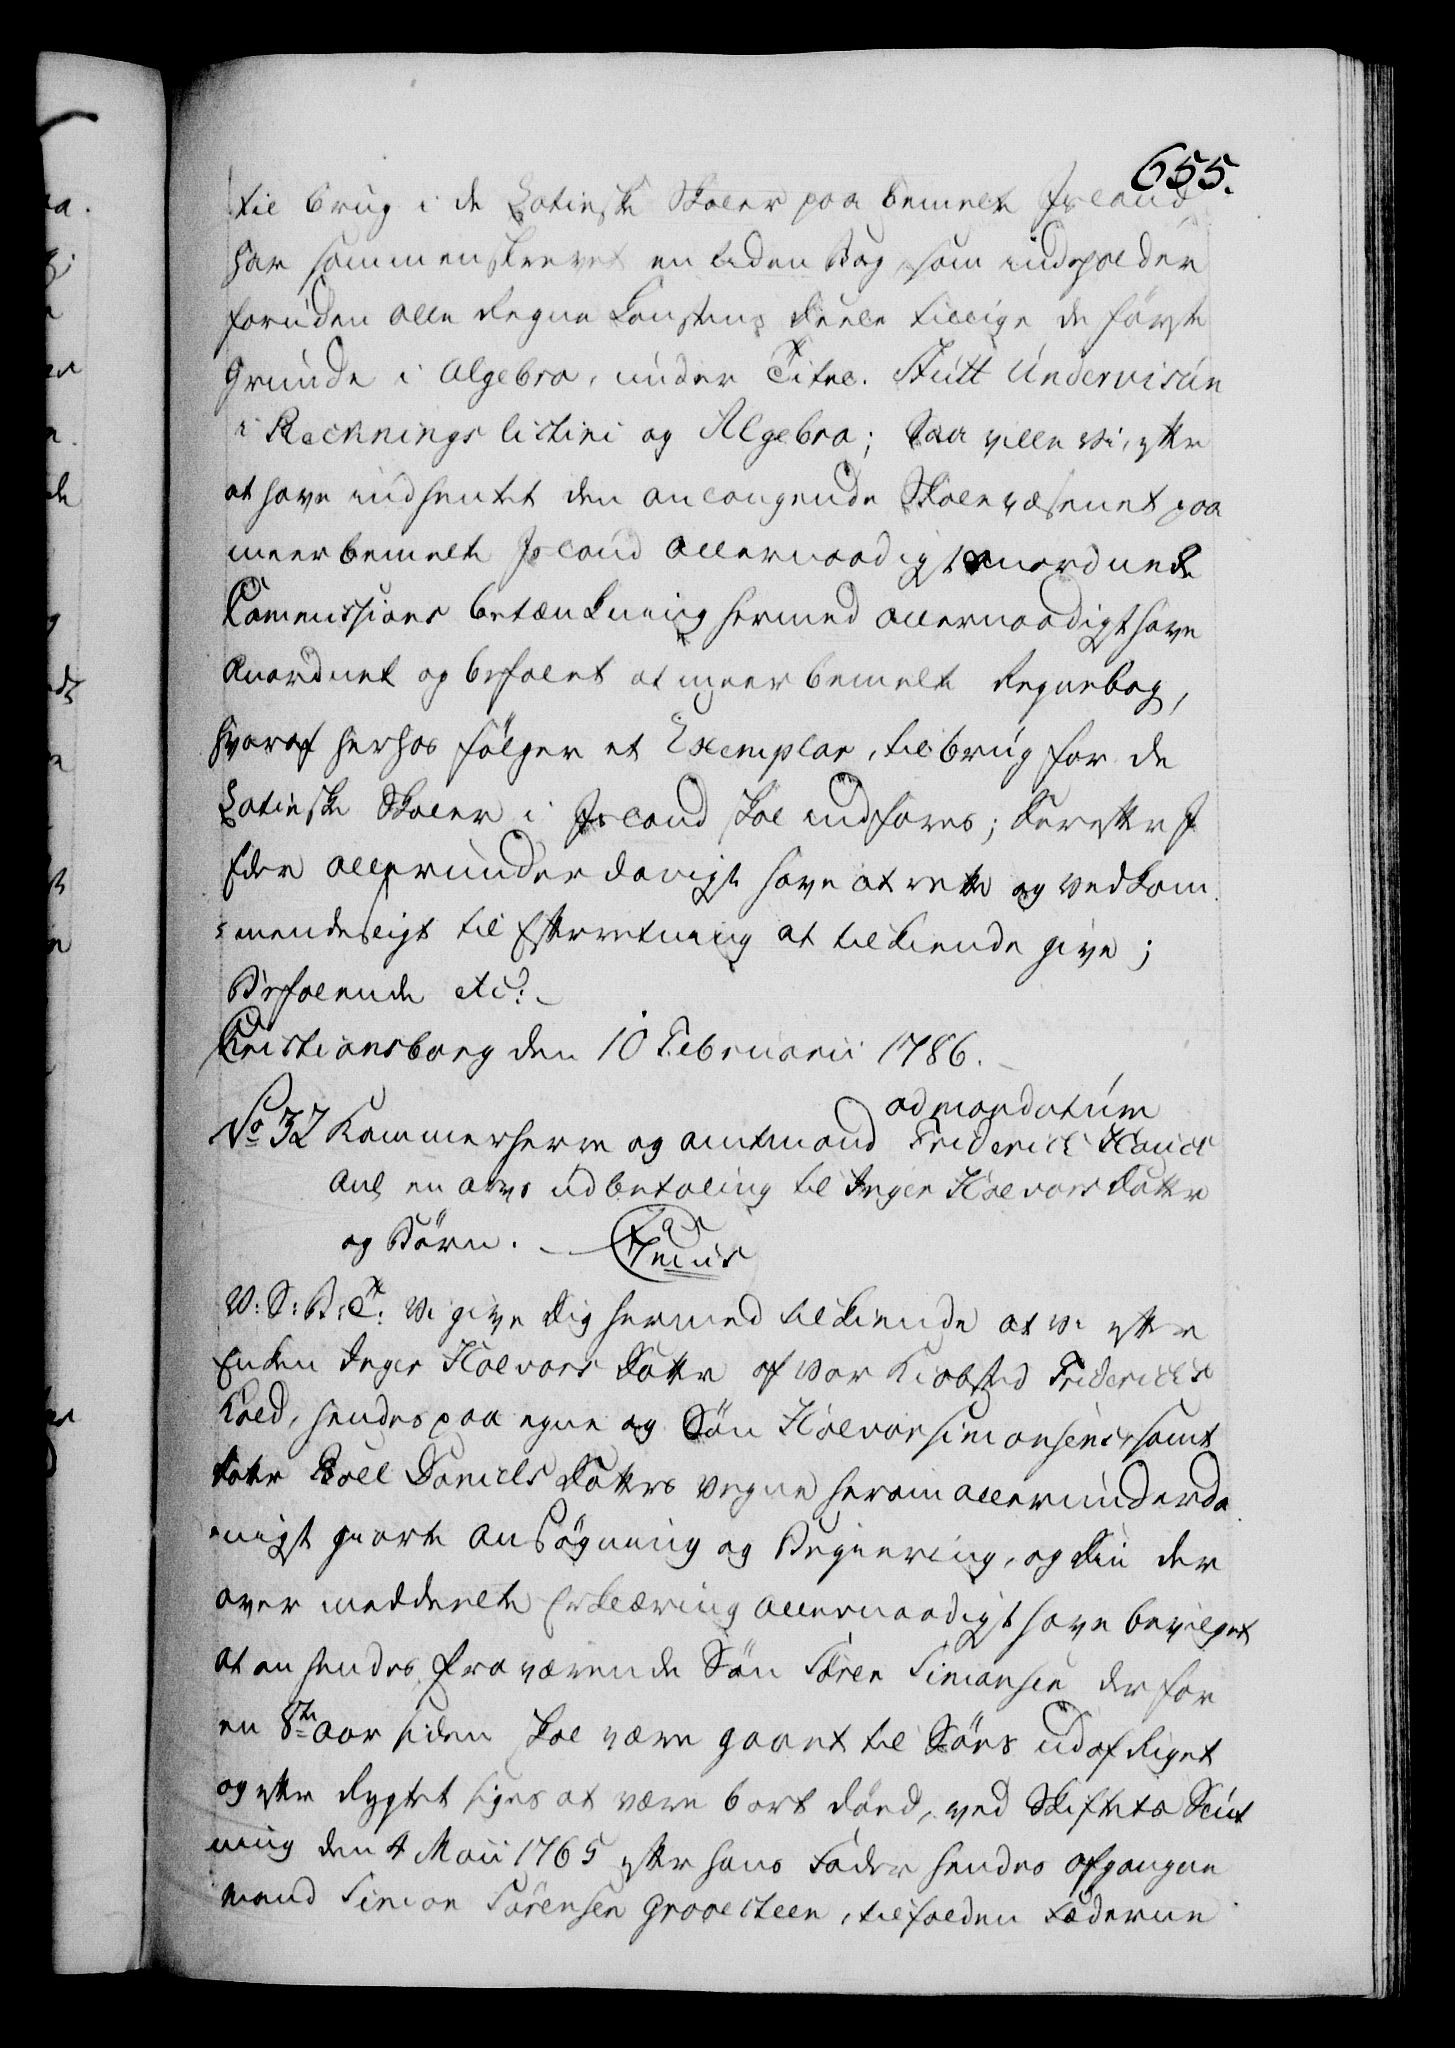 655.
til brug i de Latinske Skoler paa bemelte Island
har sammenskrevet en liden Bog, som indeholder
foruden alle Regne Konstens Deele tillige de første
Grunde i Algebra, under Titel. Stutt Undervisun
i Reckningslistini og Algebra; Saa ville vi, efter
at have indhentet den anlangende Skolevæsenet paa
meerbemelte Island allernaadigst anordnede
Commissions betænkning hermed allernaadigst have
Anordnet og befalet at meerbemelte Regnebog,
hvoraf herhos følger et Exemplar, til brug for de
Latinske Skoler i Island skal indføres; Derefter I
Eder allerunderdanigst have at rette og vedkom
mendeligt til Efterretning at tilkiende give;
Befalende etc:
Christiansborg den 10 Februarii 1786.
ad mandatum
No 32 Kammerherre og amtmand Friderich
Anl en arvs udbetaling til Inger Halvors Datter
og Børn.
V: S: B: T: Vi give Dig hermed tilkiende at vi efter
Enken Inger Halvors Datter af vor Kiøbsted Friderichs
hald, hendes paa egne og Søn Halvor Simonsens samt
Datter Boel Daniels Datters vegne herom allerunderda
nigst giorte Ansøgning og Begiering, og Din der
over meddeelte Erklæring allernaadigst have bevilget
at en hendes fraværende Søn Søren Simonsen der for
en 8te Aar siden skal være gaaet til Søes ud af Riget
og efter Rygtet siges at være bort død, ved Skiftets Slut
ning den 4 Maii 1765 efter hans Fader hendes afgangne
mand Simon Sørensen Graaesteen, tilfalden Fæderne